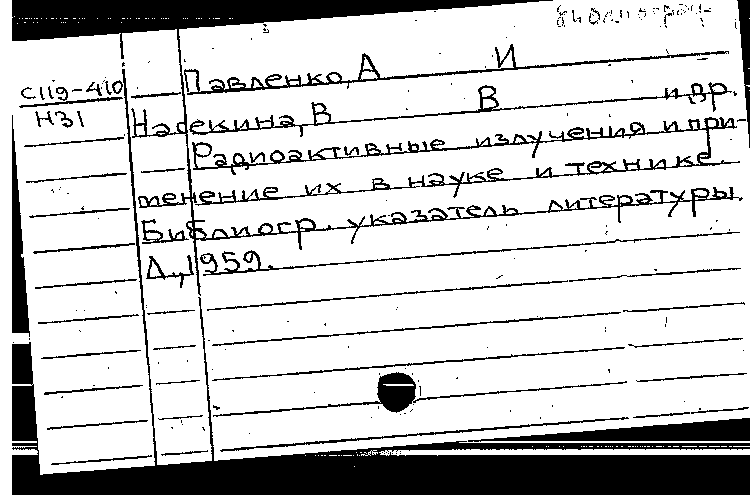 Павленко, А И
С119-410
Н31
Насекина, В В и др.
Радиоактивные излучения и при-
менение их в науке и технике.
Библиогр. указатель литературы.
Л., 1959.